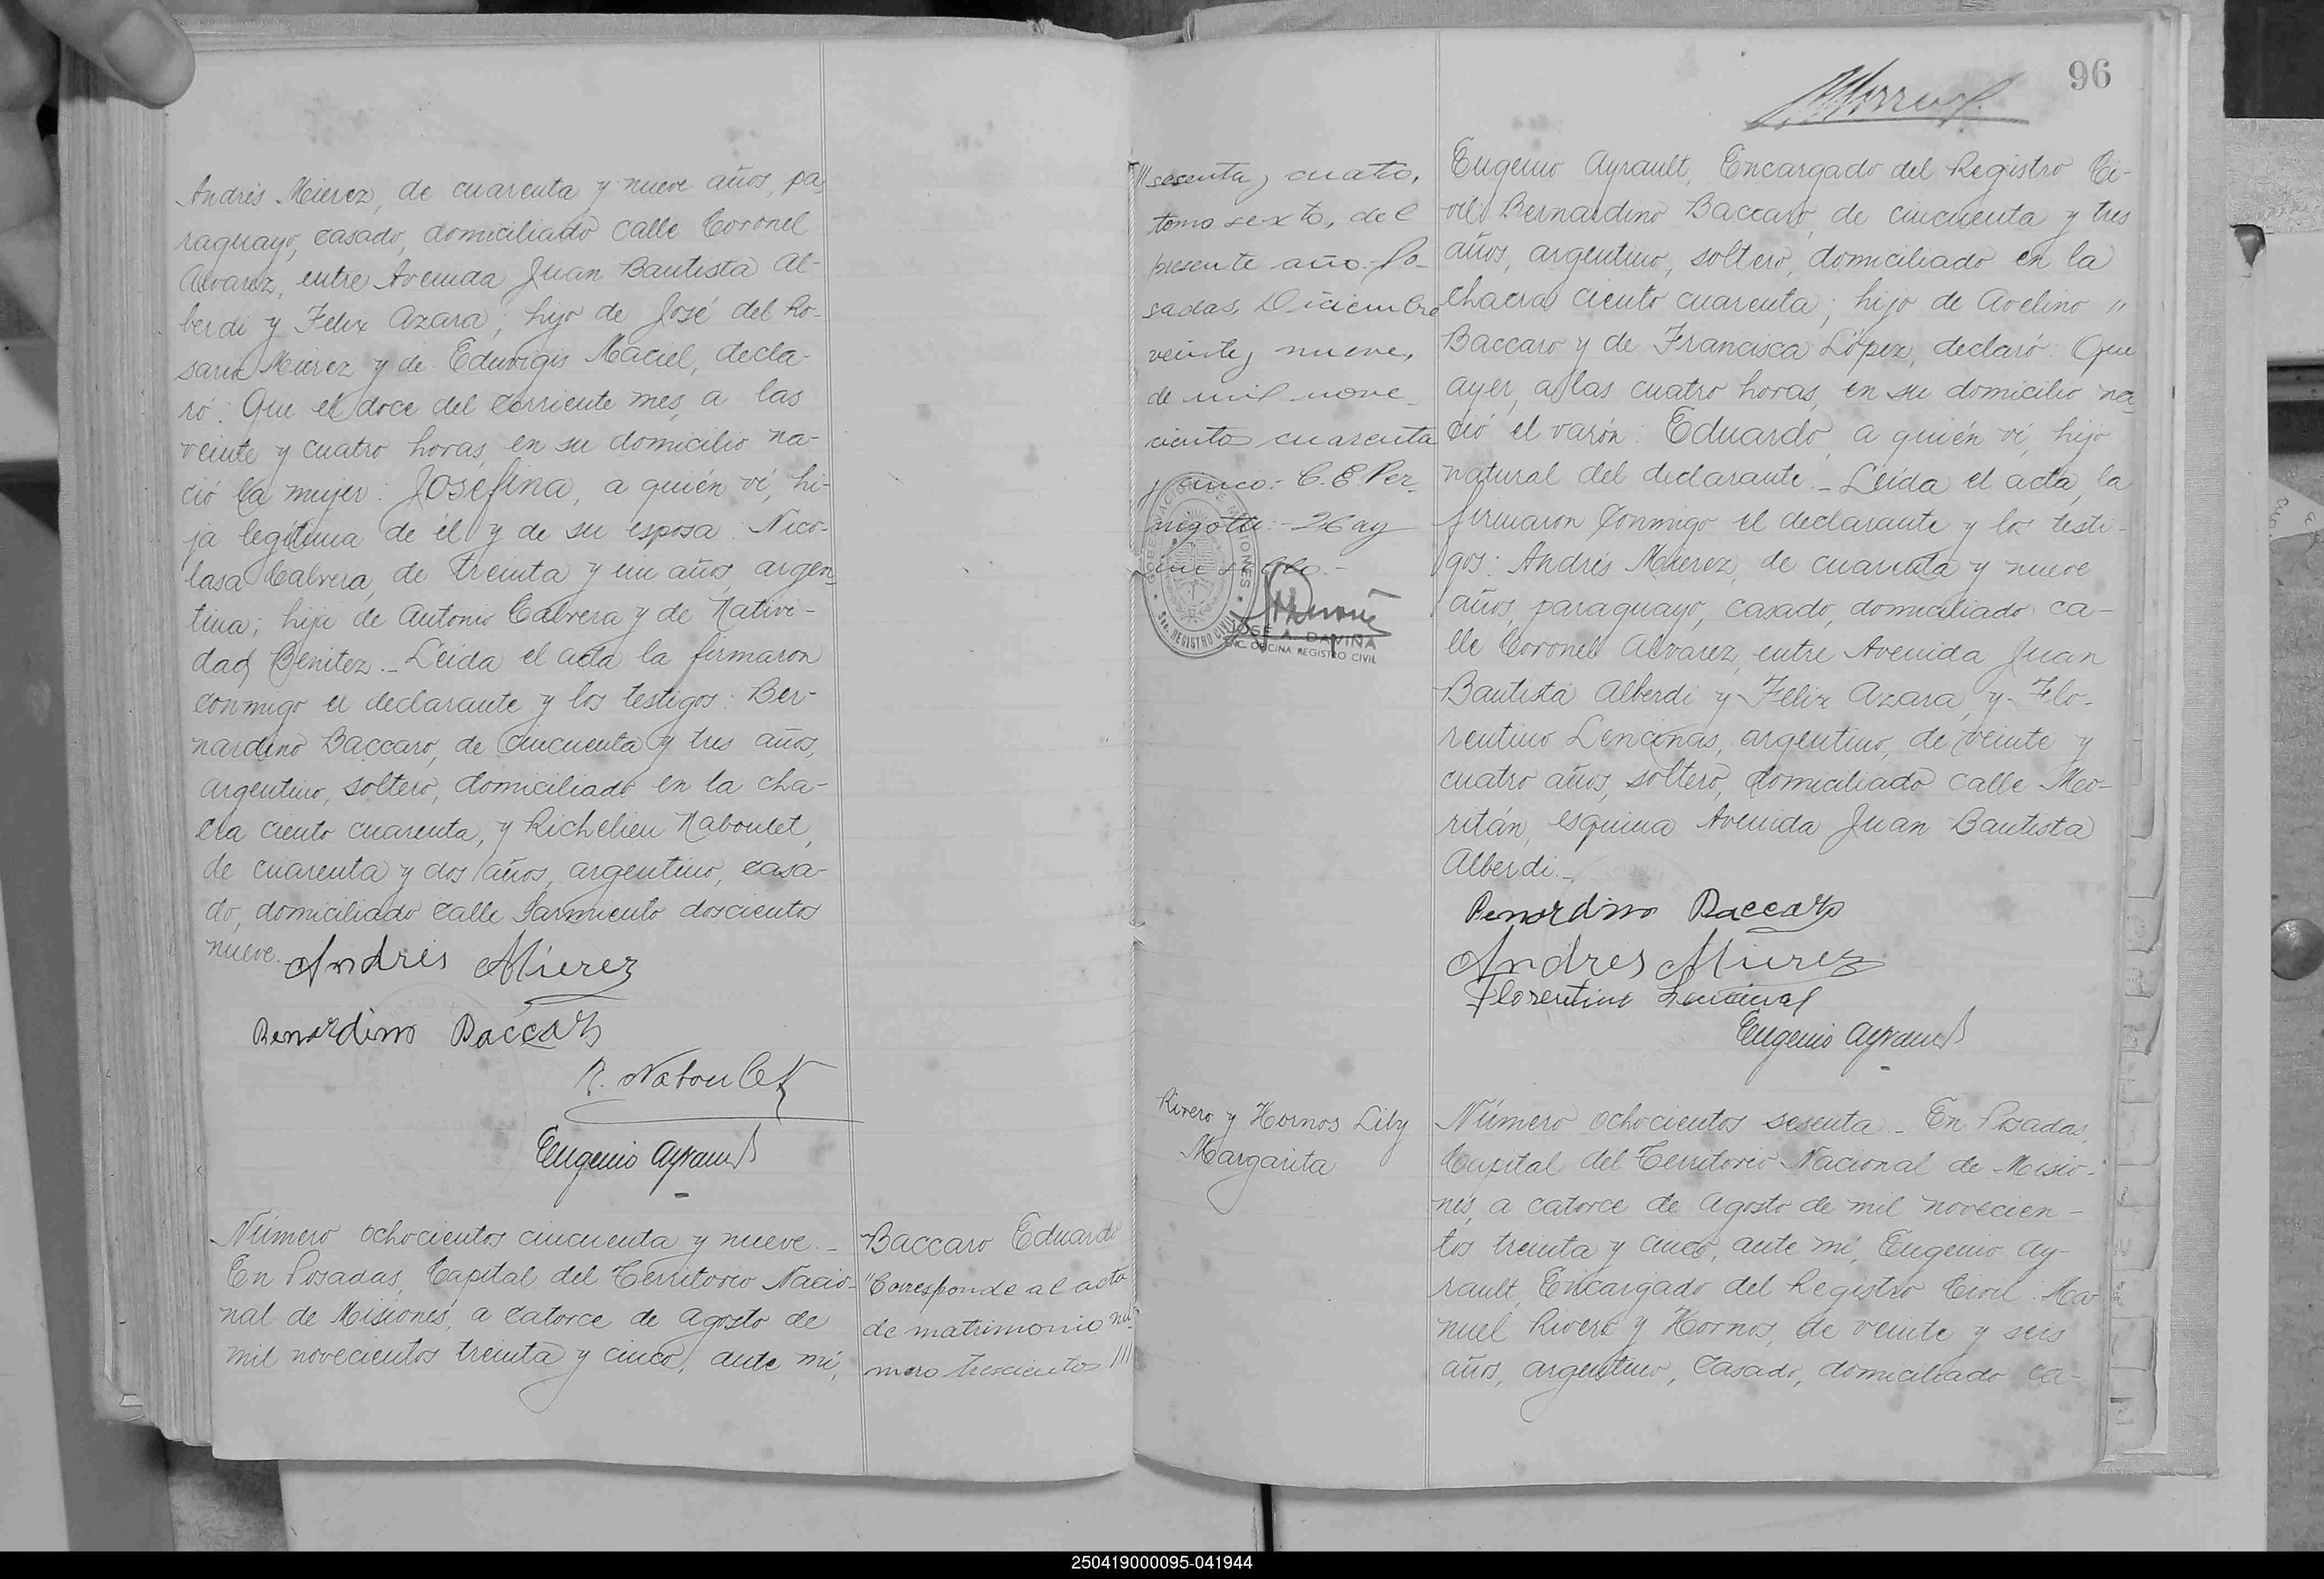 Andrés Mierez, de cuarenta y nueve años, pa-
raguayo, casado, domiciliado calle Coronel
Alvarez, entre Avenida Juan Bautista Al-
berdi y Felix Azara; hijo de José del Ro-
sario Mierez y de Eduvigis Maciel, decla-
ró: Que el doce del corriente mes, a las
veinte y cuatro horas, en su domicilio na-
ció la mujer: Josefina, a quién ví, hi-
ja legítima de él y de su esposa: Nico-
lasa Calvera, de treinta y un años, argen-
tina; hija de Antonio Calvera y de Nativi-
dad Benitez._ Leída el acta la firmaron
conmigo el declarante y los testigos: Ber-
nardino Baccaro, de cincuenta y tres años,
argentino, soltero, domiciliado en la cha-
cra ciento cuarenta, y Richelieu Naboulet,
de cuarenta y dos años, argentino, casa-
do, domiciliado calle Sarmiento doscientos
nueve.
Andrés Mierez
Bernardino Baccaro
R. Naboulet
Eugenio Ayrault
Número ochocientos cincuenta y nueve._
En Posadas, Capital del Territorio Nacio-
nal de Misiones, a catorce de Agosto de
mil novecientos treinta y cinco, ante mí,
Baccaro Eduardo
"Corresponde al acta
de matrimonio nú-
mero trescientos ///
96
/// sesenta y cuatro,
tomo sexto, del
presente año.- Po-
sadas, Diciembre
veinte y nueve,
de mil nove-
cientos cuarenta
y cinco.- C. E. Per-
GOBERNACION DE MISIONES
Sec. REGISTRO CIVIL
JOSE A. DAVIÑA
ENC. OFICINA REGISTRO CIVIL
Eugenio Ayrault, Encargado del Registro Ci-
vil: Bernardino Baccaro, de cincuenta y tres
años, argentino, soltero, domiciliado en la
chacra ciento cuarenta; hijo de Avelino "
Baccaro y de Francisca López, declaró: Que
ayer, a las cuatro horas, en su domicilio na-
ció el varón: Eduardo, a quién ví, hijo
natural del declarante._ Leída el acta, la
firmaron conmigo el declarante y los testi-
gos: Andrés Mierez, de cuarenta y nueve
años, paraguayo, casado, domiciliado ca-
lle Coronel Alvarez, entre Avenida Juan
Bautista Alberdi y Felix Azara, y Flo-
rentino Lencinas, argentino, de veinte y
cuatro años, soltero, domiciliado calle Mo-
ritán, esquina Avenida Juan Bautista
Alberdi._
Bernardino Baccaro
Andrés Mierez
Florentino Lencinas
Eugenio Ayrault
Rivero y Hornos Lily
Margarita
Número ochocientos sesenta._ En Posadas,
Capital del Territorio Nacional de Misio-
nes, a catorce de Agosto de mil novecien-
tos treinta y cinco, ante mí, Eugenio Ay-
rault, Encargado del Registro Civil: Ma-
nuel Rivero y Hornos, de veinte y seis
años, argentino, casado, domiciliado ca-
250419000095-041944